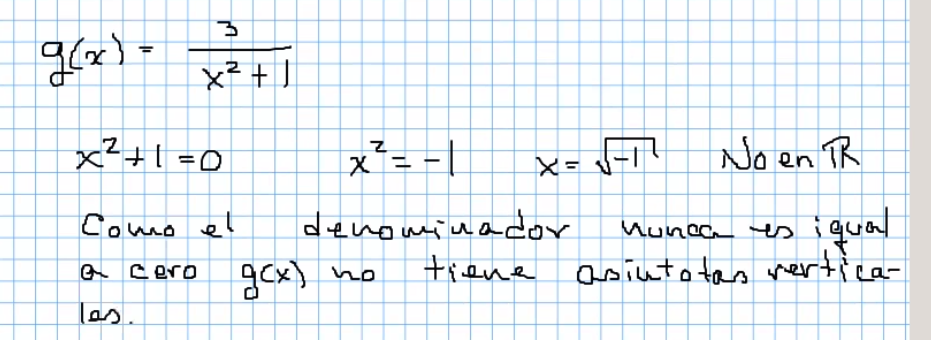 g(x) = 3 / (x² + 1)
x² + 1 = 0 x² = -1 x = √-1 No en ℝ
Como el denominador nunca es igual
a cero g(x) no tiene asintotas vertica-
les.